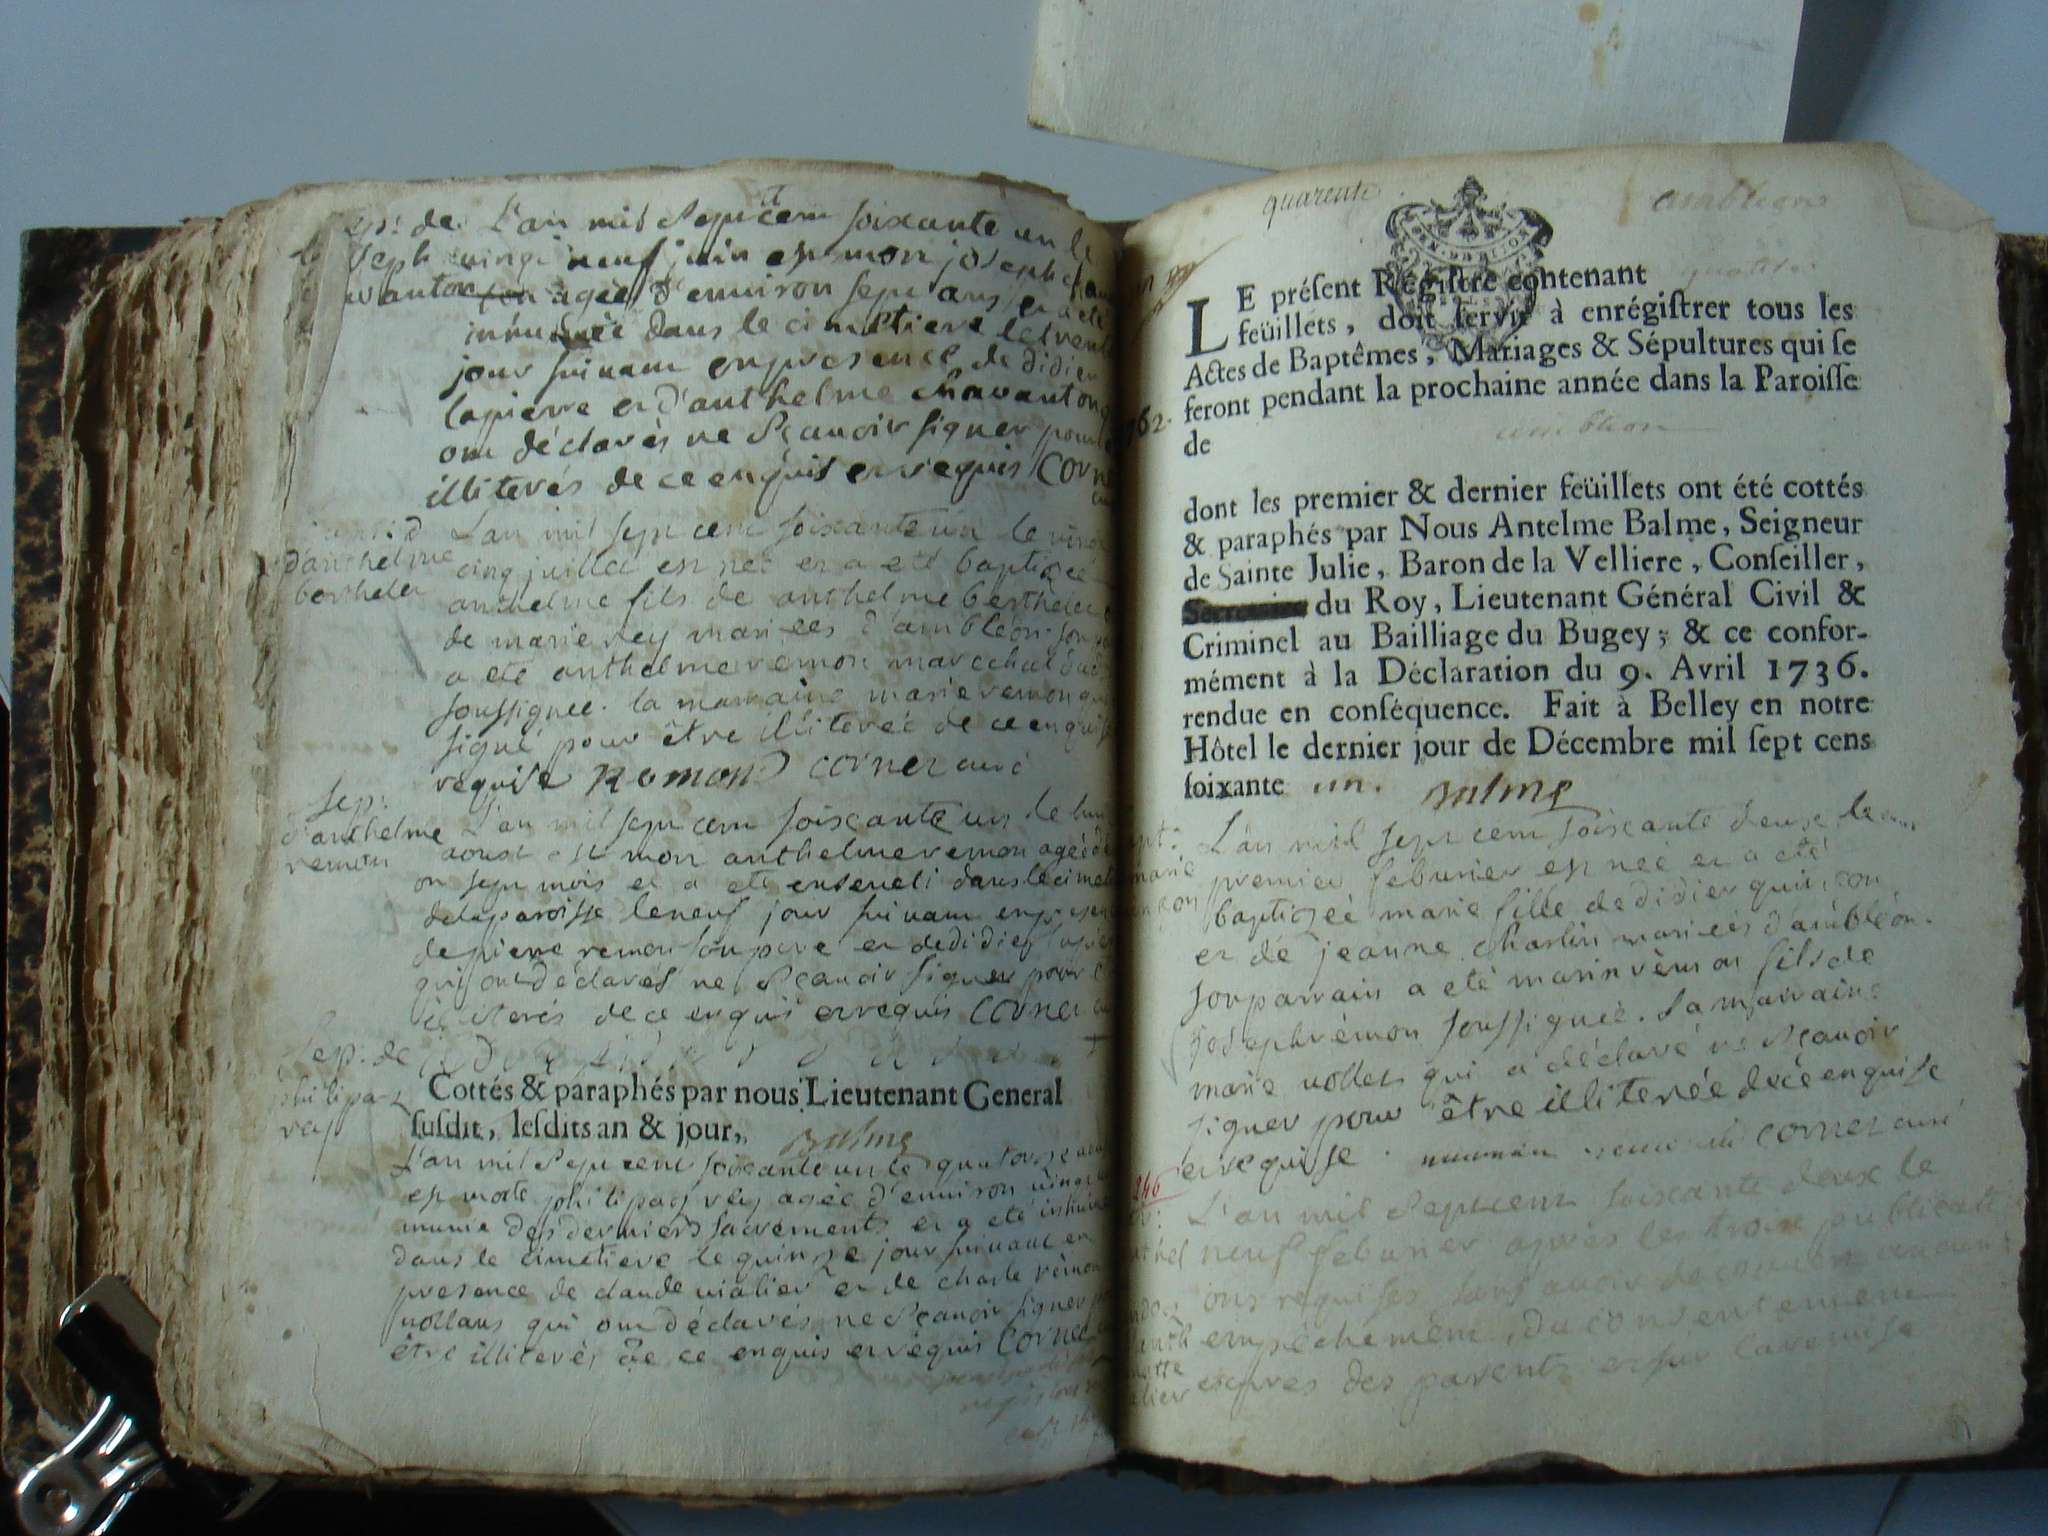 sep: de L'an mil sept cem soixante un le
vingt neuf juin est mort joseph
agée d'environ sept ans et a eté
inhumée dans le cimetiere le trente
jour suivam en presence de didier
lapierre et d'anthelme chavanton
om déclarés ne sçauoir signer pour
illiterés de ce enquis et requis Corne
d'anthelme
berthelet
L'an mil sept cem soixante un le vingt
cinq juillet est neé et a eté baptizeé
anthelme fils de anthelme berthelet
de marie rey mariées d'ambléon. son
a eté anthelme remon marechal
soussignée. la marraine marie remon qui
signé pour être illiterée de ce enquise
requise Remond cornet curé
sep:
d'anthelme
remon
L'an mil sept cem soixante un le huit
aoust est mort anthelme remon ageé
on sept mois et a eté enseueli dans le
de la paroisse le neuf jour suivam en
de pierre remon son pere et de didier
qui om déclarés ne sçauoir signer pour
illiterés de ce enquis et requis cornet
sep: de
philipaz
ray
Cottés & paraphés par nous Lieutenant General
susdit, lesdits an & jour, Balme
L'an mil sept cem soixante un le quatorze
est morte philipaz rey ageé d'enuison vingt
munie des derniers sacrements et a eté inhumé
dans le cimetiere le quinze jour suivant en
presence de claude vialier et de charle rémon
vollans qui om déclarés ne sçauoir signer
être illiterés de ce enquis et requis Cornet
quarente
amblieon
LE présent Régistre contenant
feüillets, doit servir à enrégistrer tous les
Actes de Baptêmes, Mariages & Sépultures qui se
feront pendant la prochaine année dans la Paroisse
de amblion
dont les premier & dernier feüillets ont été cottés
& paraphés par Nous Antelme Balme, Seigneur
de Sainte Julie, Baron de la Velliere, Conseiller,
du Roy, Lieutenant Général Civil &
Criminel au Bailliage du Bugey; & ce confor-
mément à la Déclaration du 9. Avril 1736.
rendue en conséquence. Fait à Belley en notre
Hôtel le dernier jour de Décembre mil sept cens
soixante un. Balme
L'an mil sept cem soixante deux le
premier feburier est neé et a eté
baptizeé marie fille de didier quinson
et de jeanne charlin mariées d'ambléon.
son parrain a eté marin rémon fils de
joseph rémon soussigneé. la marraine
marie vollet qui a déclaré ne sçauoir
signer pour être illiterée de ce enquise
et requise. cornet curé
246
L'an mil sept cem soixante deux le
neuf feburier après les trois publicati
ons requises sans auoir decouuert aucun
empêchement, du consentement
exprès des parents et sur la remise